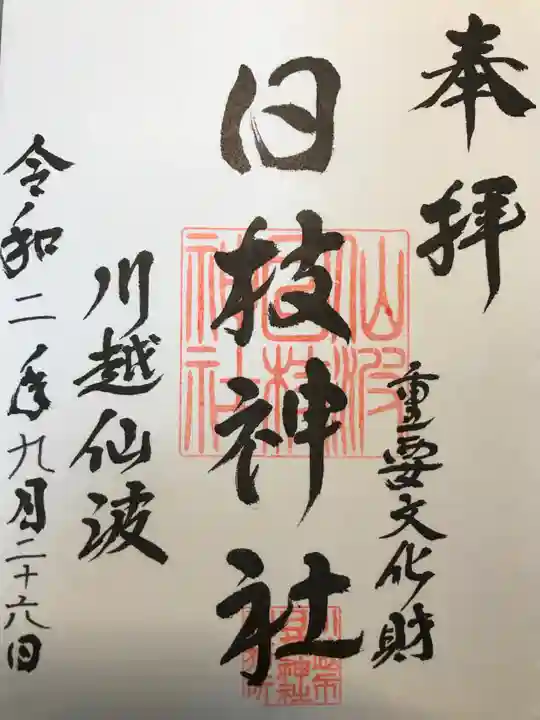 奉拝
重要文化財
日枝神社
仙波
日枝
神社
川越仙波
令和二年九月二十六日